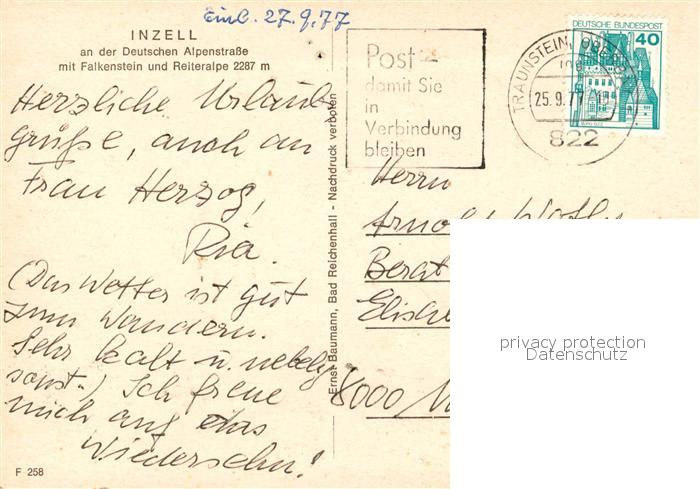 Einl. 27.9.77
INZELL
an der Deutschen Alpenstraße
mit Falkenstein und Reiteralpe 2287 m
Herzliche Urlaub
grüße, auch an
Frau Herzog,
Ria.
(Das Wetter ist gut
zum Wandern.
Sehr kalt u. nebelig
sonst.) Ich freue
mich auf das
Wiedersehn!
F 258
Ernst Baumann, Bad Reichenhall - Nachdruck verboten
Post -
damit Sie
in
Verbindung
bleiben
TRAUNSTEIN, OBERBAY
25.9.77
822
DEUTSCHE BUNDESPOST
40
Herrn
Arnold
Berat
Elische
8000
privacy protection
Datenschutz